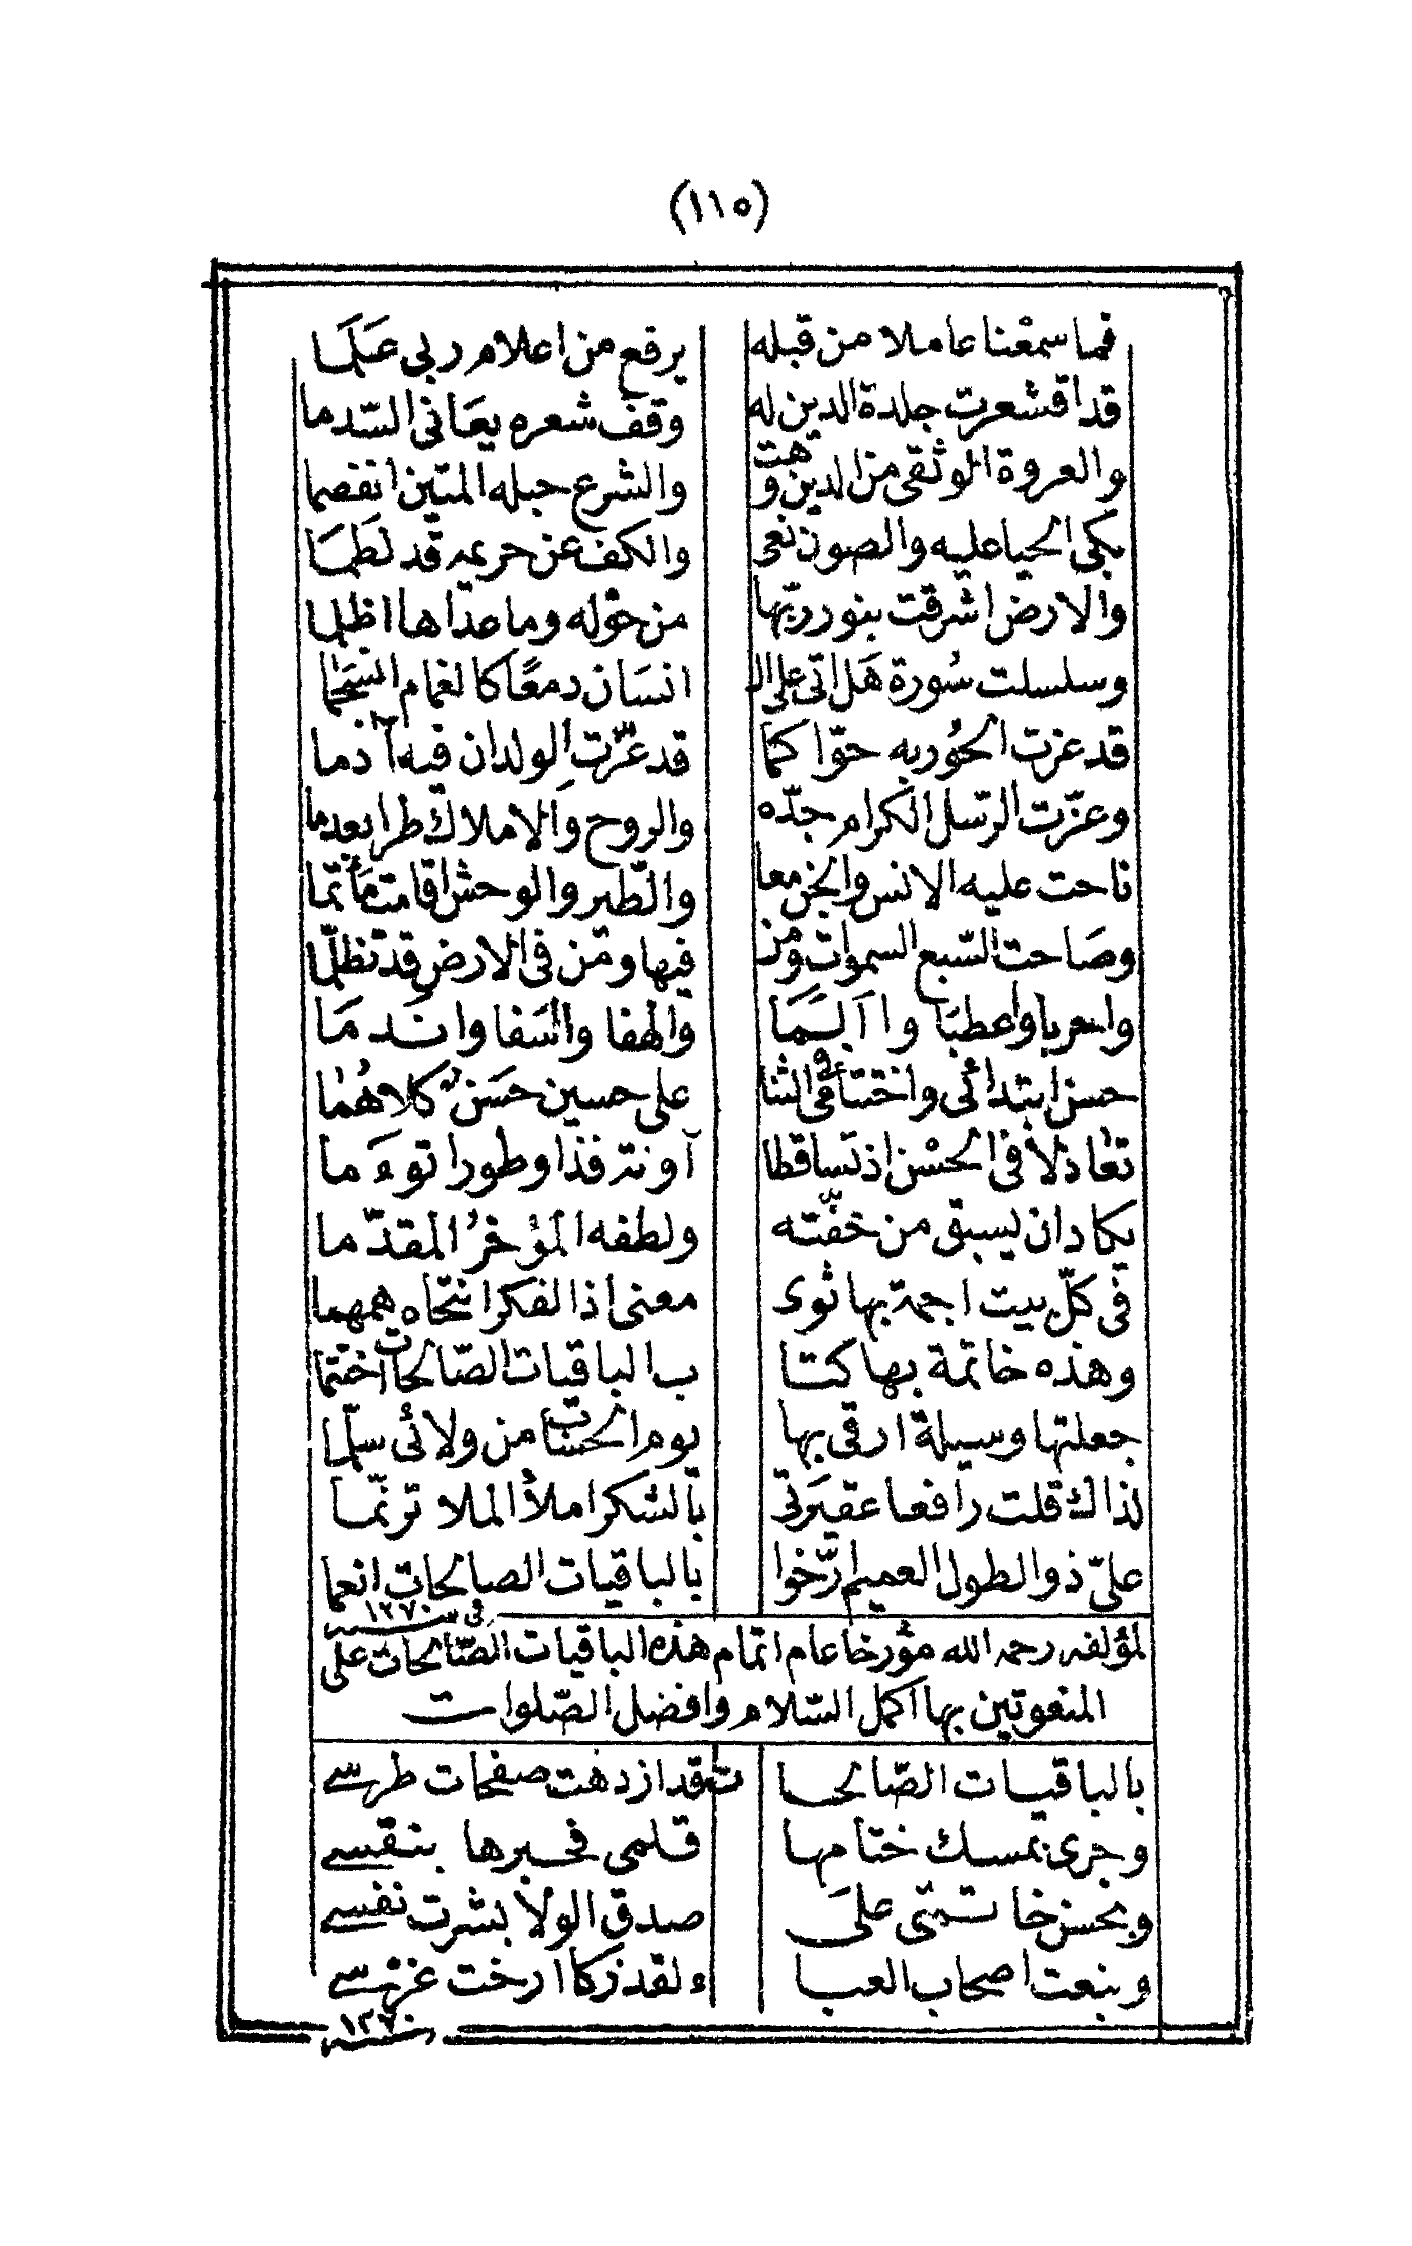 (١١٥)
فما سمعنا عاملا من قبله يرفع من اعلام ربي علما
قد اقشعرت جلدة الدين له وقف شعره يعاني السدما
والعروة الوثقى من الدين وهت والشرع حبله المتين انفصما
بكى الحيا عليه والصون نعى والكف عن حريمه قد لطما
والارض اشرقت بنور ربها من حوله وما عداها اظلما
وسلسلت سورة هل اتى على ال انسان دمعا كالغمام انسجما
قد عزت الحور به حوا كما قد عزت الولدان فيه آدما
وعزت الرسل الكرام جده والروح والاملاك طرا بعد ما
ناحت عليه الانس والجن معا والطير والوحش اقامت مأتما
وصاحت السبع السموات ومن فيها ومن في الارض قد تظلما
واعربا واعطبا وا السما والهفا واسفا واندما
حسن ابتدائي واختتامي في الثنا على حسين حسن كلاهما
تعادلا في الحسن اذ تساقطا آونة فذا وطورا توءما
يكاد ان يسبق من خفته ولطفه المؤخر المقدما
في كل بيت اجمة بها ثوى معنى اذا الفكر انتحاه همهما
وهذه خاتمة بها كتا ب الباقيات الصالحات اختتما
جعلتها وسيلة ارقى بها يوم الحساب من ولائي سلما
لذاك قلت رافعا عقيرتي بالشكر املأ الملا ترنما
علي ذو الطول العميم ارخوا بالباقيات الصالحات انعما
في سنة ١٢٧٠
لمؤلفه رحمه الله مؤرخا عام اتمام هذه الباقيات الصالحات على
المنعوتين بها اكمل السلام وافضل الصلوات
بالباقيات الصالحا ت قد ازدهت صفحات طرسي
وجرى بمسك ختامها قلمي فحبرها بنقسي
وبحسن خاتمتي على صدق الولا بشرت نفسي
وبنعت اصحاب العبا ء لقد زكا ارخت غرسي
سنة ١٢٧٠